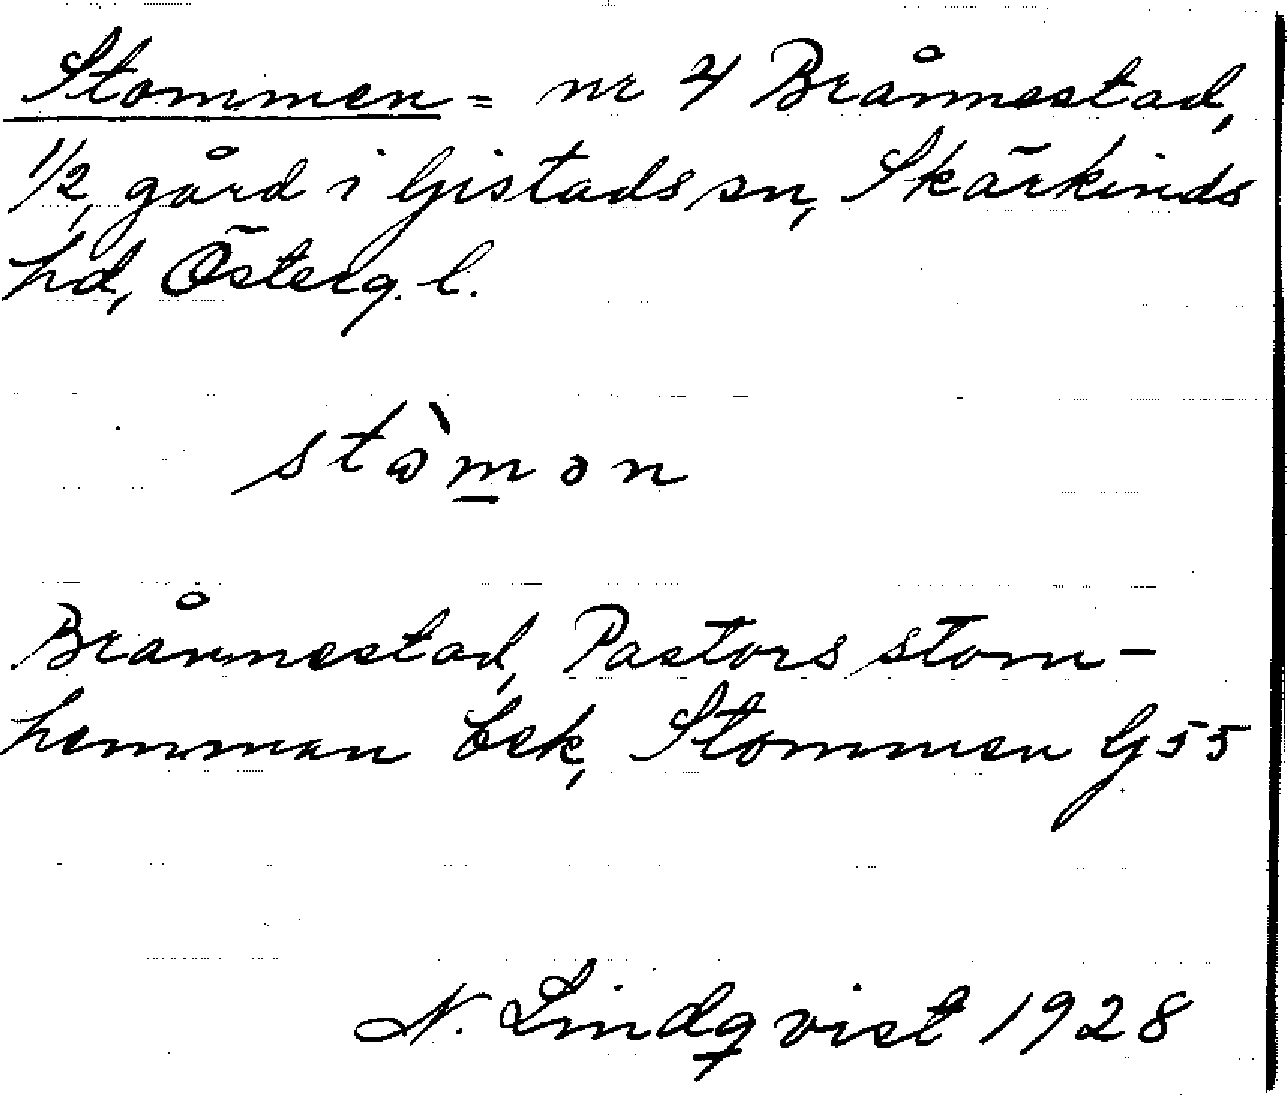 Stommen = nr 4 Brånnestad,
1/2 gård i Gistads sn, Skärkinds
hd, Österg. l.
stò̀mən
Brånnestad, Pastors stom-
hemman bek, Stommen G 55
N. Lindqvist 1928